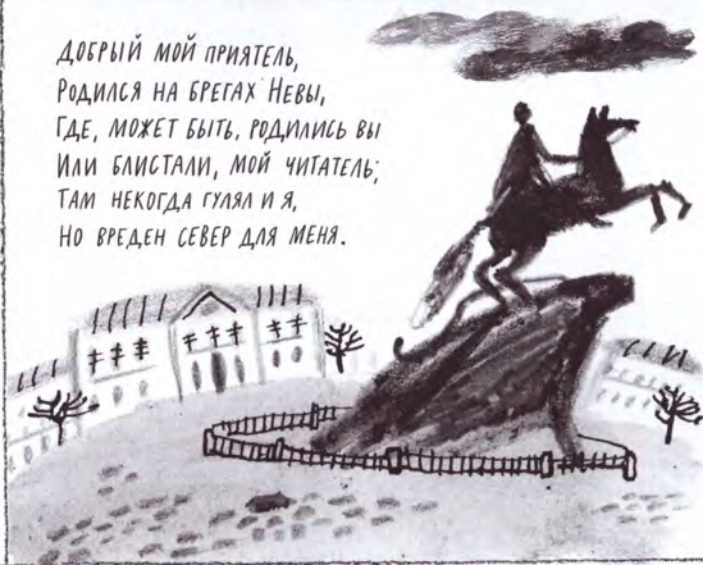 ДОБРЫЙ МОЙ ПРИЯТЕЛЬ,
РОДИЛСЯ НА БРЕГАХ НЕВЫ,
ГДЕ, МОЖЕТ БЫТЬ, РОДИЛИСЬ ВЫ
ИЛИ БЛИСТАЛИ, МОЙ ЧИТАТЕЛЬ;
ТАМ НЕКОГДА ГУЛЯЛ И Я,
НО ВРЕДЕН СЕВЕР ДЛЯ МЕНЯ.